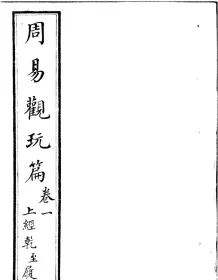 周易觀玩篇卷一
上經乾至履